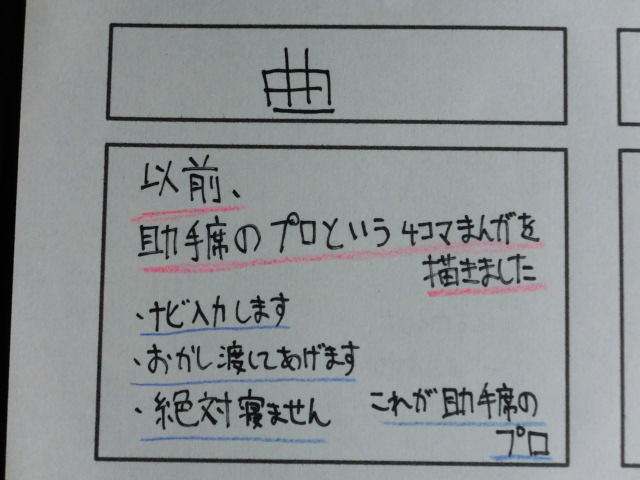 曲
以前、
助手席のプロという4コマまんがを
描きました
・ナビ入力します
・おかし渡してあげます
・絶対寝ません
これが助手席の
プロ